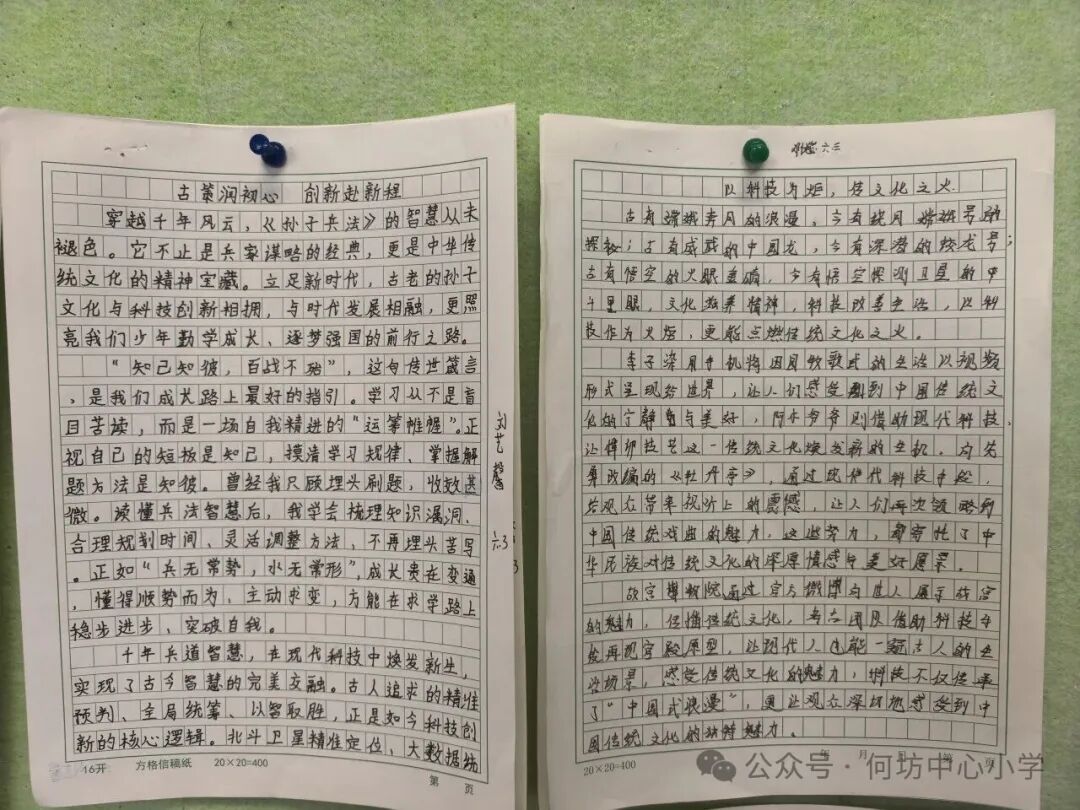 古策润初心 创新赴新程
穿越千年风云，《孙子兵法》的智慧从未
褪色。它不止是兵家谋略的经典，更是中华传
统文化的精神宝藏。立足新时代，古老的孙子
文化与科技创新相拥，与时代发展相融，更照
亮我们少年勤学成长、逐梦强国的前行之路。
“知己知彼，百战不殆”，这句传世箴言
，是我们成长路上最好的指引。学习从不是盲
目苦读，而是一场自我精进的“运筹帷幄”。正
视自己的短板是知己，摸清学习规律、掌握解
题方法是知彼。曾经我只顾埋头刷题，收效甚
微。读懂兵法智慧后，我学会梳理知识漏洞、
合理规划时间、灵活调整方法，不再埋头苦写
。正如“兵无常势，水无常形”，成长贵在变通
，懂得顺势而为、主动求变，方能在求学路上
稳步进步、突破自我。
千年兵道智慧，在现代科技中焕发新生，
实现了古今智慧的完美交融。古人追求的精准
预判、全局统筹、以智取胜，正是如今科技创
新的核心逻辑。北斗卫星精准定位，大数据统
16开 方格信稿纸 20×20=400
第 页
刘艺
六.3
六三
以科技为炬，传文化之火
古有嫦娥奔月的浪漫，今有 嫦娥号的
探秘；古有威武的中国龙，今有深潜的蛟龙号；
古有悟空的火眼金睛，今有悟空探测卫星的千
里眼，文化滋养精神，科技改善生活，以科
技作为火炬，更能点燃传统文化之火。
李子柒用手机将田园牧歌式的生活以视频
形式呈现给世界，让人们感受到中国传统文
化的宁静与美好，阿木爷爷则借助现代科技，
让榫卯技艺这一传统文化焕发新的生机，
改编的《牡丹亭》，通过现代科技手段，
给观众带来视听上的震撼，让人们再次领略到
中国传统戏曲的魅力，这些努力，都寄托了中
华民族对传统文化的深厚情感与美好愿景。
故宫博物院通过官方微博向世人展示故宫
的魅力，传播传统文化，考古团队借助科技手
段再现宫殿原型，让现代人也能一窥古人的生
活场景，感受传统文化的魅力，科技不仅传承
了“中国式浪漫”，更让观众深切地感受到中
国传统文化的独特魅力。
20×20=400
年 月 日 第 页
公众号·何坊中心小学